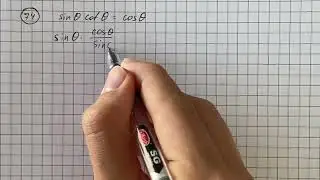 74 sinθ cotθ = cosθ
sinθ · cosθ/sin
SG